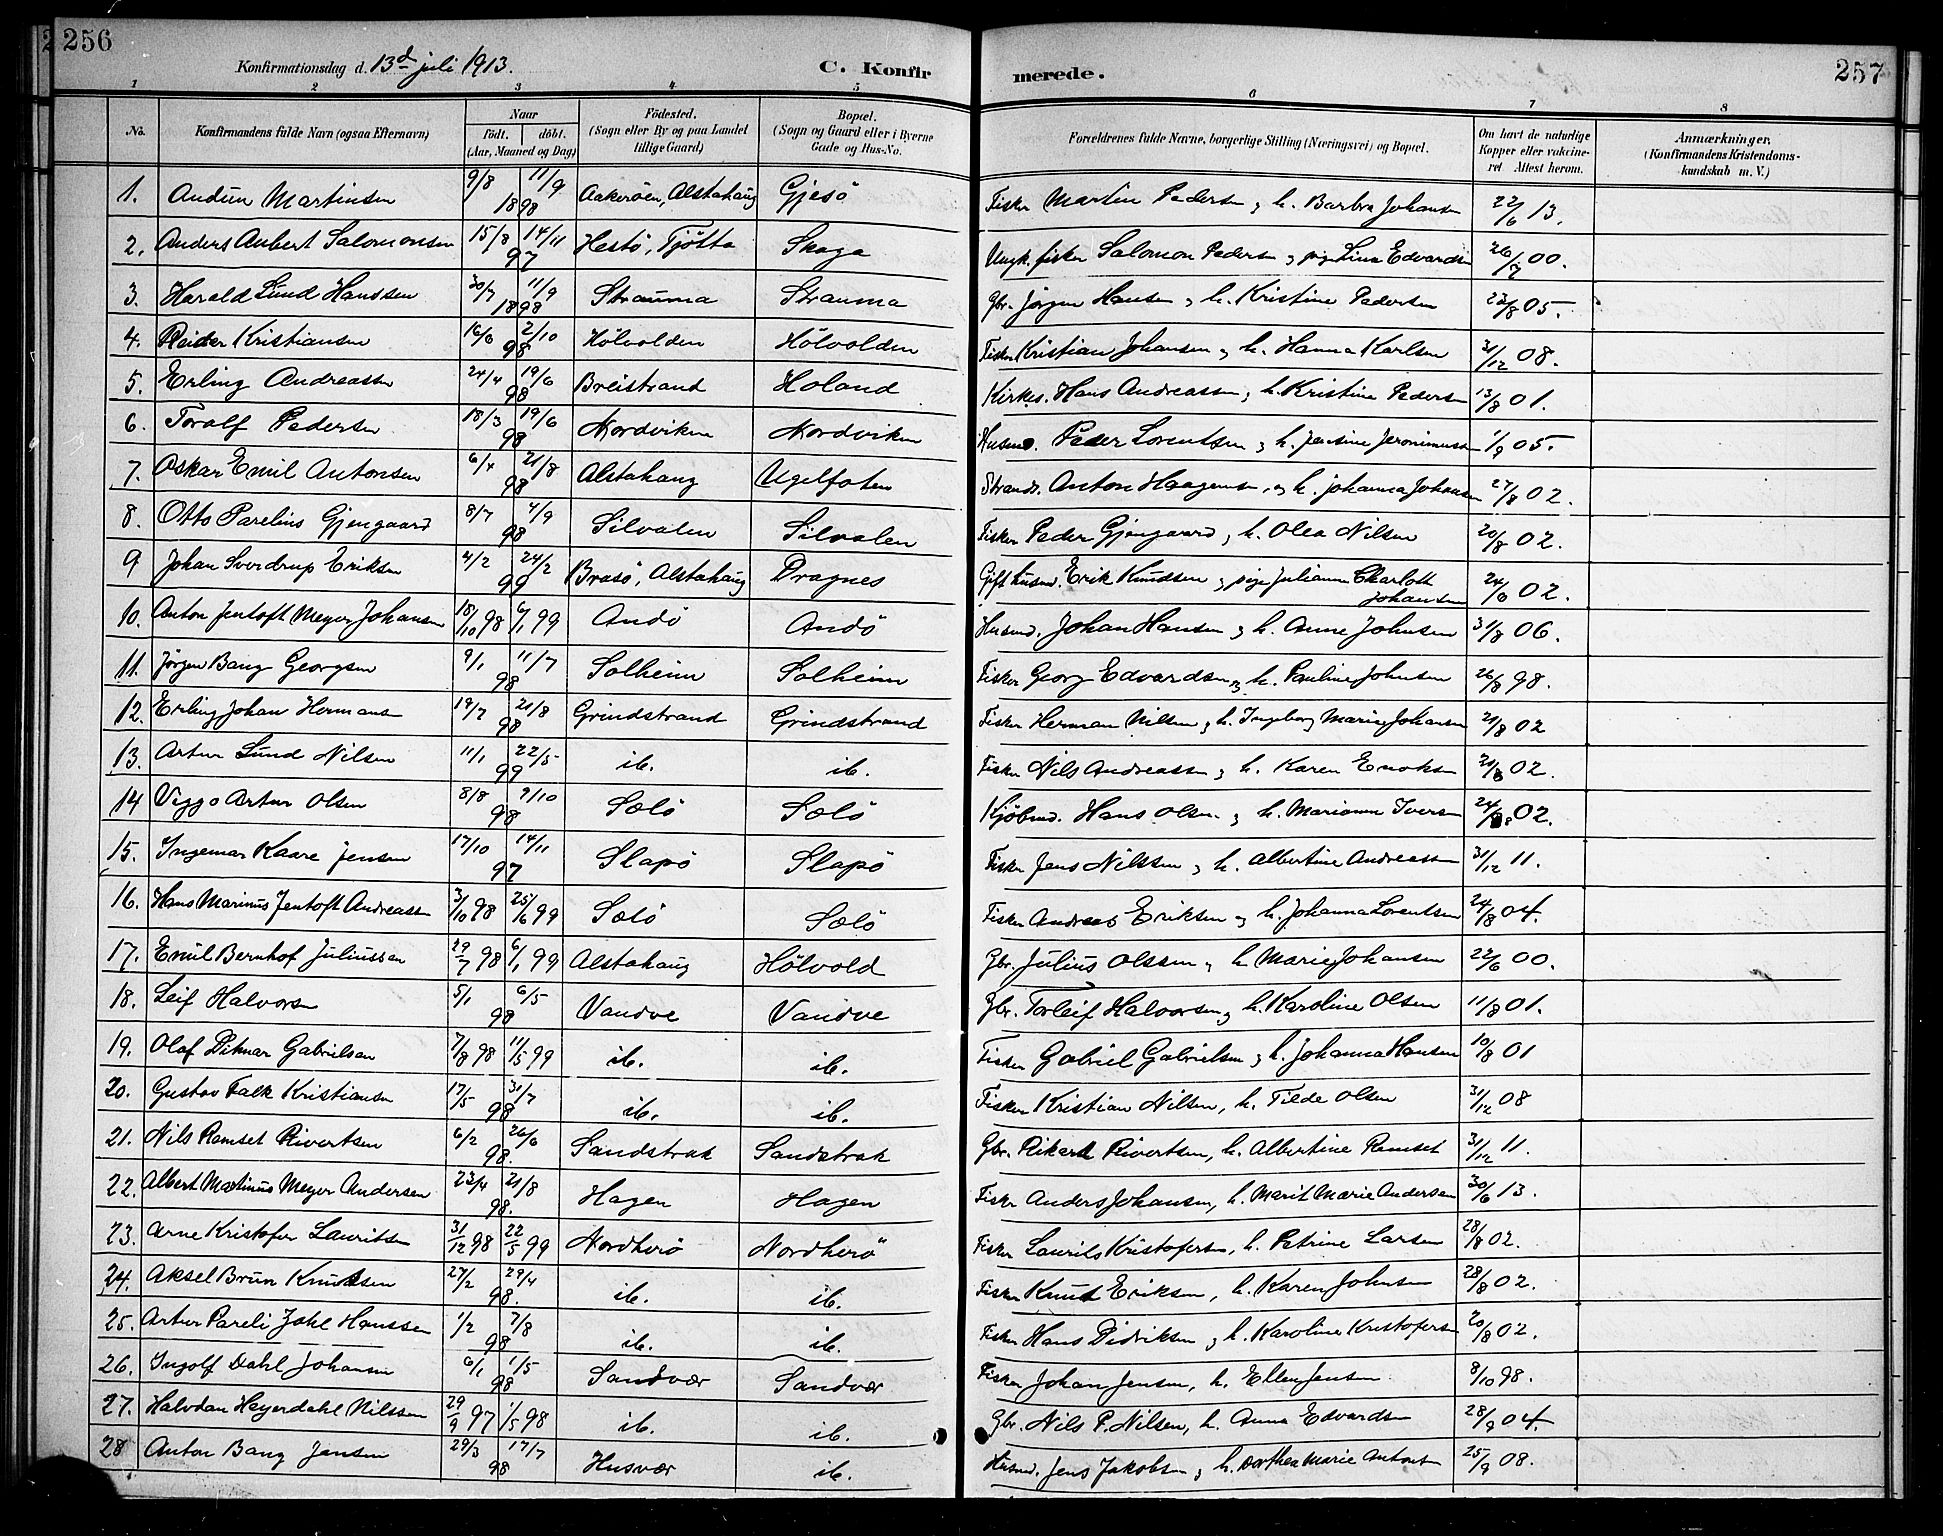 256
Konfirmationsdag d. 13d juli 1913.
C. Konfirmerede.
257
1 2 3 4 5 6 7 8
No. Konfirmandens fulde Navn (ogsaa Efternavn) Naar födt. döbt. (Aar, Maaned og Dag) Födested. (Sogn eller By og paa Landet tillige Gaard) Bopæl. (Sogn og Gaard eller i Byerne Gade og Hus-No. Forældrenes fulde Navne, borgerlige Stilling (Næringsvei) og Bopæl. Om havt de naturlige Kopper eller vakcineret Attest herom. Anmærkninger. (Konfirmandens Kristendomskundskab m. V.)
1. Audun Martinsen 9/8 11/9 1898 Aakeröen, Alstahaug Gjesö Fisker Martin Pedersen og h. Barbra Johansen 22/6 13.
2. Anders Aubert Salomonsen 15/8 14/11 97 Hestö, Tjötta Skaga Ungk. fisker Salomon Pedersen og pige Lina Edvardsen 26/7 00.
3. Harald Lund Hanssen 30/7 11/9 1898 Strauma Strauma Gbr. Jörgen Hansen og h. Kristine Pedersen 23/8 05.
4. Reider Kristiansen 16/6 2/10 98 Hölvolden Hölvolden Fisker Kristian Johansen og h. Hanna Karlsen 31/12 08.
5. Erling Andreassen 24/4 19/6 98 Breistrand Holand Kirkes. Hans Andreassen og h. Kristine Pedersen 13/8 01.
6. Toralf Pedersen 18/3 19/6 98 Nordviken Nordviken Husmd. Peder Lorentsen og h. Jensine Jeronimussen 1/9 05.
7. Oskar Emil Antonsen 6/4 21/8 98 Alstahaug Ugelfoten Strands. Anton Haagensen og h. Johanna Johansen 27/8 02.
8. Otto Parelius Gjengaard 8/7 4/9 98 Silvalen Silvalen Fisker Peder Gjengaard og h. Olea Nilsen 20/8 02.
9 Johan Sverdrup Eriksen 4/2 24/2 99 Brasö, Alstahaug Dragnes Gift husmd. Erik Knudsen og pige Julianna Charlott Johansen 24/6 02.
10. Anton Jentoft Meyer Johansen 18/10 98 6/1 99 Andö Andö Husmd. Johan Hansen og h. Anne Johnsen 31/8 06.
11. Jörgen Bang Georgsen 9/1 11/7 98 Solheim Solheim Fisker Georg Edvardsen og h. Pauline Johnsen 26/8 98.
12. Erling Johan Hermansen 19/7 21/8 98 Grindstrand Grindstrand Fisker Herman Nilsen og h. Ingeborg Marie Johansen 21/8 02
13. Artur Lund Nilsen 11/1 22/5 99 ib. ib. Fisker Nils Andreassen og h. Karen Enoksen 21/8 02.
14 Viggo Artur Olsen 8/8 9/10 98 Sælö Sælö Kjöbmd. Hans Olsen og h. Marianne Iversen 24/8 02.
15. Ingemar Kaare Jensen 17/10 14/11 97 Slapö Slapö Fisker Jens Nilssen og h. Albertine Andreassen 31/12 11.
16. Hans Marinus Jentoft Andreassen 3/10 98 25/6 99 Sælö Sælö Fisker Andreas Eriksen og h. Johanna Lorentsen 24/8 04.
17. Emil Bernhof Juliussen 29/7 98 6/1 99 Alstahaug Hölvold Gbr. Julius Olssen og h. Marie Johansen 22/6 00.
18. Leif Halvorsen 5/1 6/5 98 Vandve Vandve Gbr. Torleif Halvorsen og h. Karoline Olsen 11/8 01.
19. Olaf Ditmar Gabrielsen 7/8 98 11/5 99 ib. ib. Fisker Gabriel Gabrielsen og h. Johanna Hansen 10/8 01
20. Gustav Falk Kristiansen 17/5 31/7 98 ib. ib. Fisker Kristian Nilsen, h. Tilde Olsen 31/12 08
21. Nils Remset Rivertsen 6/2 26/6 98. Sandstrak Sandstrak Gbr. Rikard Rivertsen, h. Albertine Remset 31/12 11.
22. Albert Martinus Meyer Andersen 23/4 21/8 98. Hagen Hagen Fisker Anders Johansen, h. Marit Marie Andersen 30/6 13.
23. Arne Kristofer Lauritsen 31/12 98 22/5 99 Nordherö Nordherö Fisker Laurits Kristofersen, h. Petrine Larsen 28/8 02.
24. Aksel Brun Knudsen 27/2 29/4 98. ib. ib. Fisker Knud Eriksen, h. Karen Johnsen 28/8 02.
25. Artur Pareli Johl Hanssen 1/2 7/8 98 ib. ib. Fisker Hans Didriksen og h. Karoline Kristofersen 20/8 02.
26. Ingolf Dahl Johansen 6/1 1/5 98 Sandvær Sandvær Fisker Johan Jensen, h. Ellen Jensen 8/10 98.
27. Halvdan Heyerdahl Nilssen 29/9 97 1/5 98 ib. ib. Gbr. Nils P. Nilsen, h. Anna Edvardsen 28/9 04.
28 Anton Bang Jensen 29/3 17/7 98 Husvær ib. Husmd. Jens Jakobsen og h. Dorthea Marie Antonsen 25/9 08.